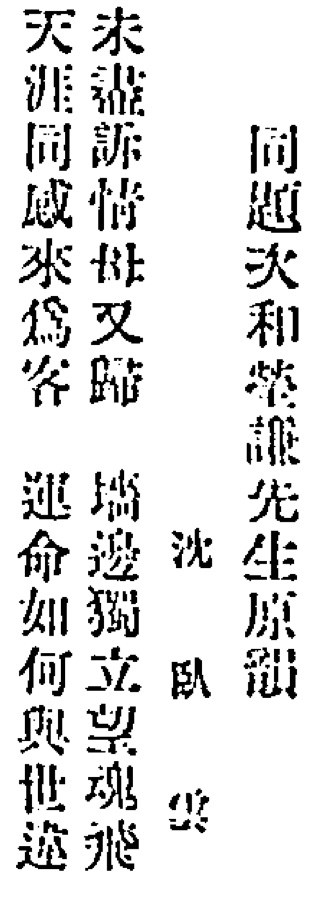 同題次和榮謙先生原韻
沈臥雲
未盡訴情母又歸　墦邊獨立望魂飛
天涯同感來爲客　運命如何與世違